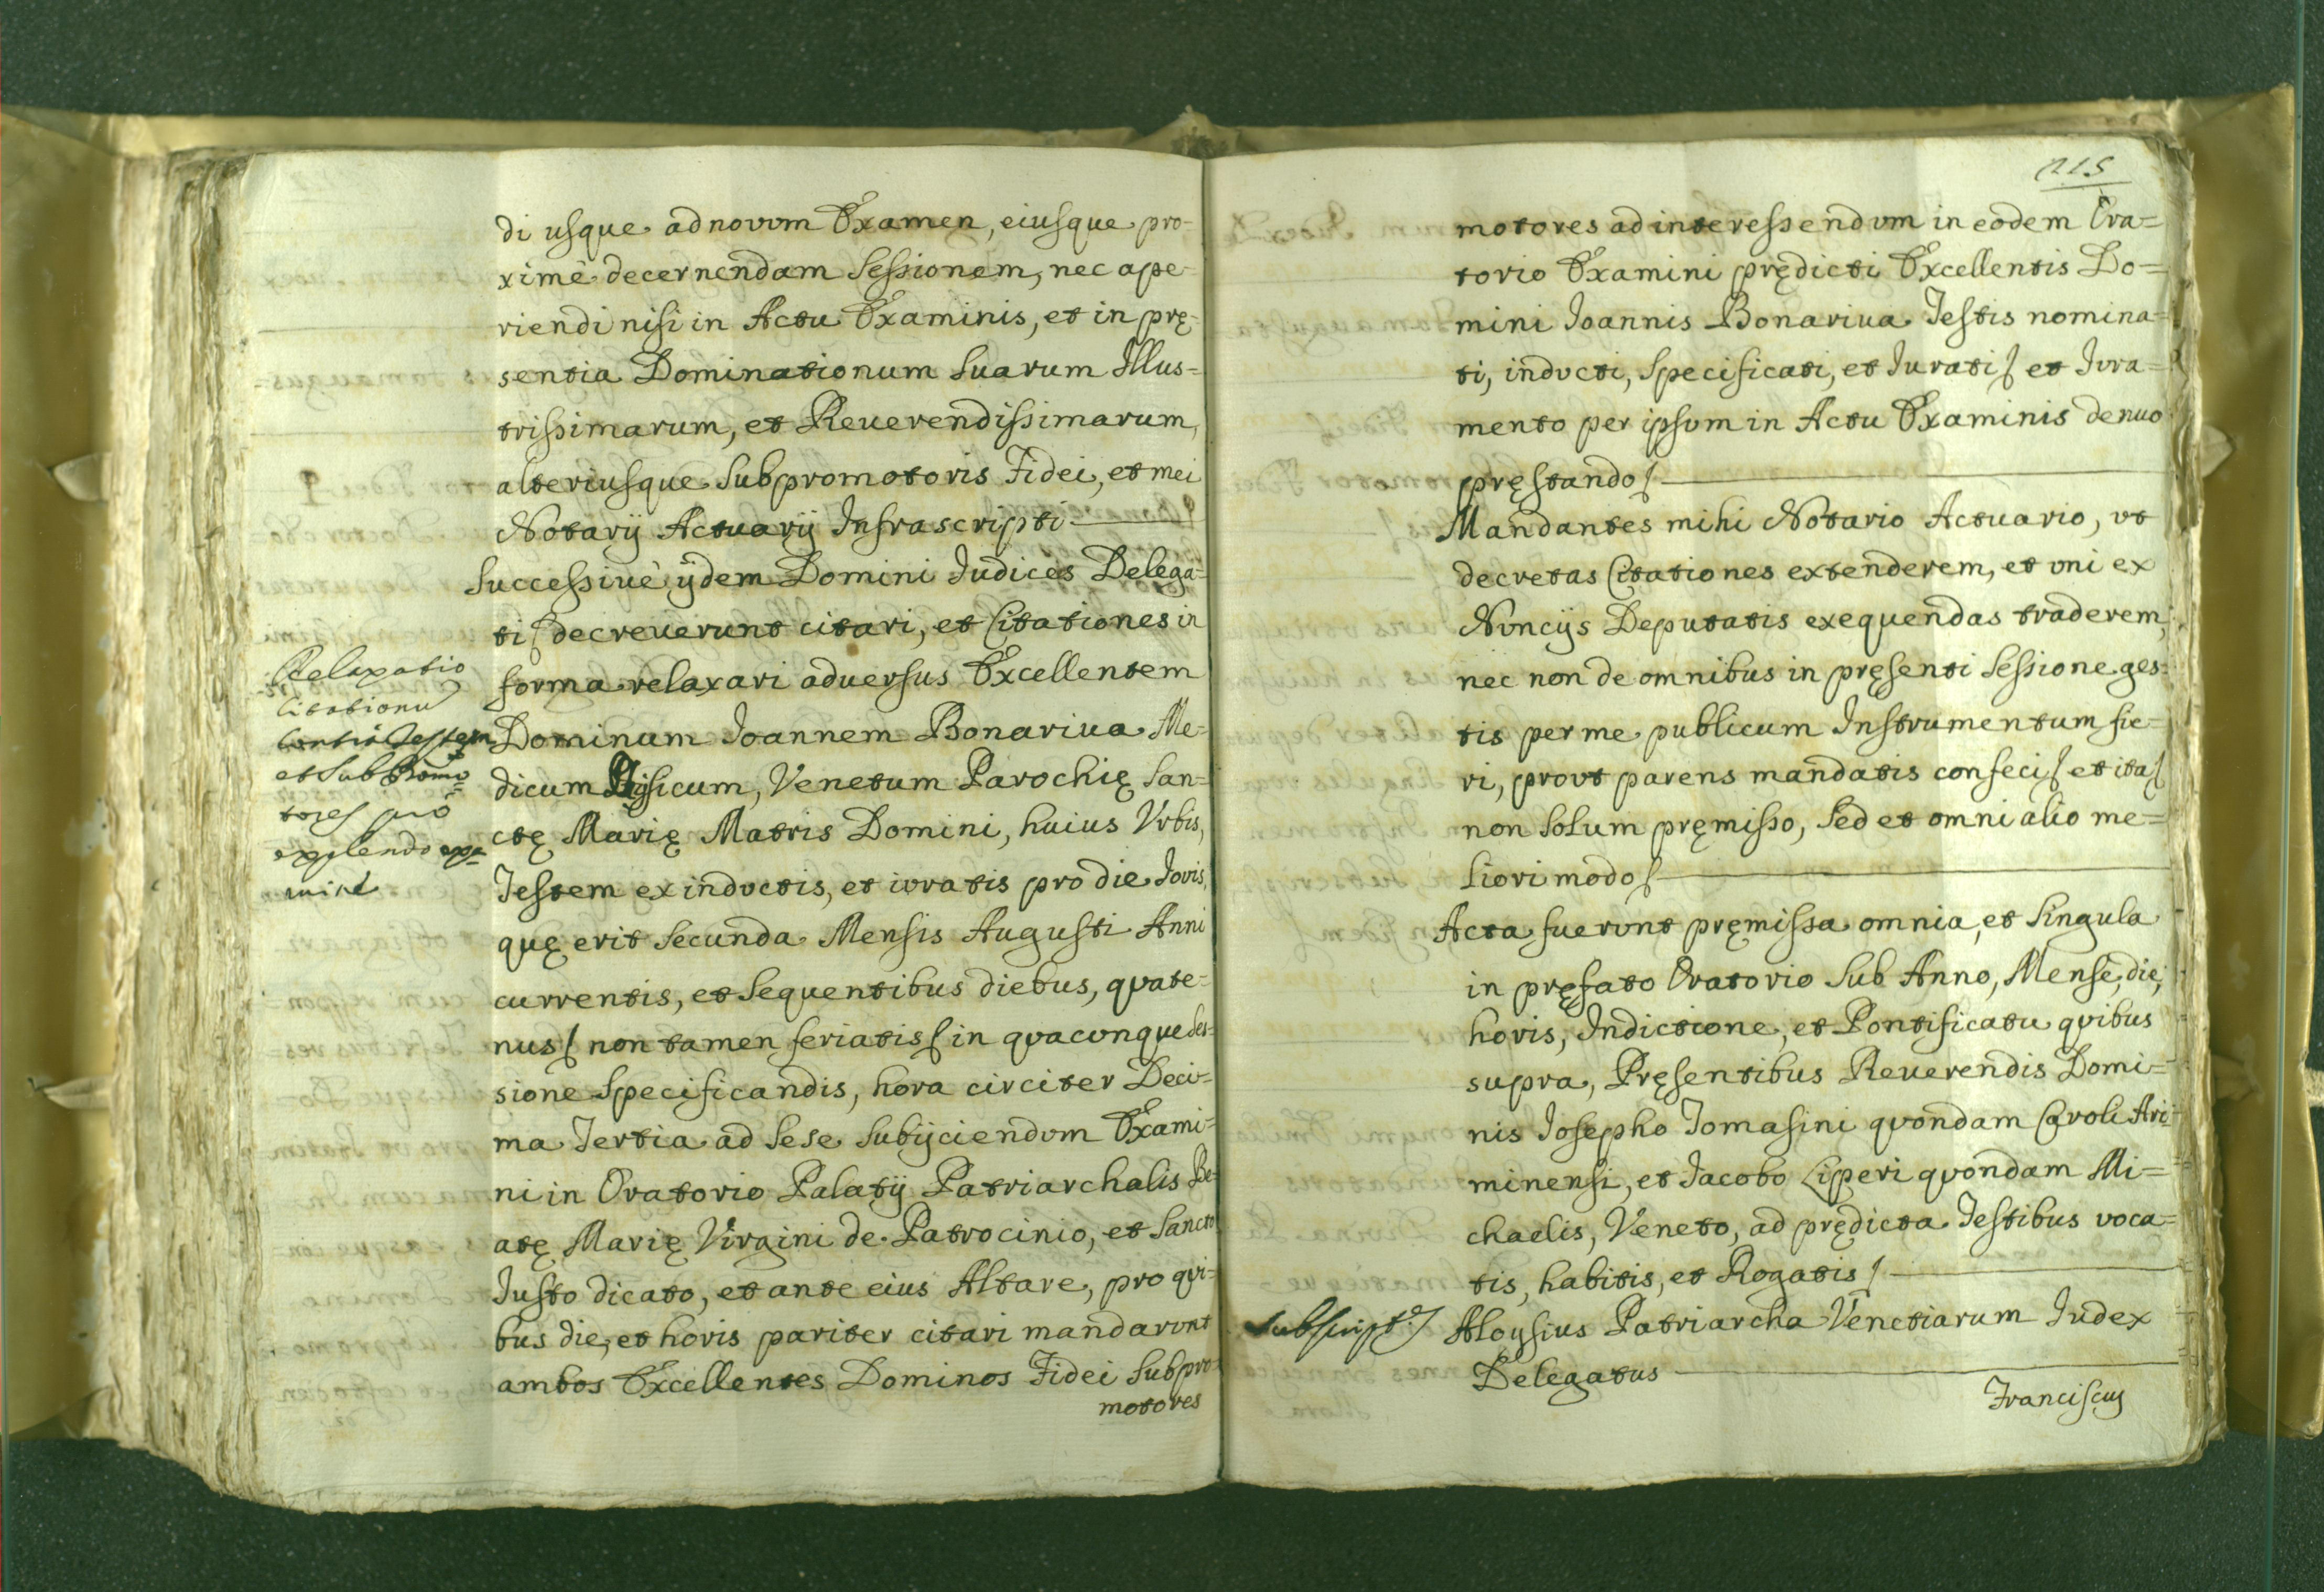 di usque ad novum Examen, eiusque pro-
ximè decernendam Sessionem, nec ape-
riendi nisi in Actu Examinis, et in prę-
sentia Dominationum Suarum Illus=
trissimarum, et Reuerendissimarum,
alteriusque Subpromotoris Fidei, et mei
Notarij Actuarij Infrascripti
Successiuè ijdem Domini Iudices Delega=
ti decreuerunt citari, et Citationes in
forma relaxari aduersus Excellentem
Dominum Ioannem Bonariua Me=
dicum Physicum, Venetum Parochię San=
ctę Marię Matris Domini, huius Vrbis,
Testem ex inductis, et iuratis pro die Iovis,
quę erit Secunda Mensis Augusti Anni
currentis, et Sequentibus diebus, quate=
nus non tamen feriatis in quacunque Ses=
sione Specificandis, hora circiter Deci=
ma Tertia ad Sese Subijciendum Exami=
ni in Oratorio Palatij Patriarchalis Be=
atę Marię Virgini de Patrocinio, et Sancto
Iusto dicato, et ante eius Altare, pro qui=
bus die, et horis pariter citari mandarunt
ambos Excellentes Dominos Fidei Subpro=
motores
Relaxatio
Citationũ
Contra Testem
et Subpromo=
tores pro
explendo exa=
mine
215
motores ad interessendum in eodem Ora=
torio Examini prędicti Excellentis Do=
mini Ioannis Bonariua Testis nomina=
ti, inducti, Specificati, et Iurati et Iura=
mento per ipsum in Actu Examinis denuo
pręstando
Mandantes mihi Notario Actuario, ut
decretas Citationes extenderem, et uni ex
Nuncijs Deputatis exequendas traderem,
nec non de omnibus in pręsenti Sessione ges=
tis per me publicum Instrumentum fie=
ri, prout parens mandatis confeci et ita
non Solum pręmisso, Sed et omni alio me=
liori modo
Acta fuerunt pręmissa omnia, et Singula
in pręfato Oratorio Sub Anno, Mense, die,
horis, Indictione, et Pontificatu quibus
supra, Pręsentibus Reuerendis Domi=
nis Iosepho Tomasini quondam Caroli Ari=
minensi, et Iacobo Liperi quondam Mi=
chaelis, Veneto, ad prędicta Testibus voca=
tis, habitis, et Rogatis
Subscript.
Aloysius Patriarcha Venetiarum Iudex
Delegatus
Franciscus